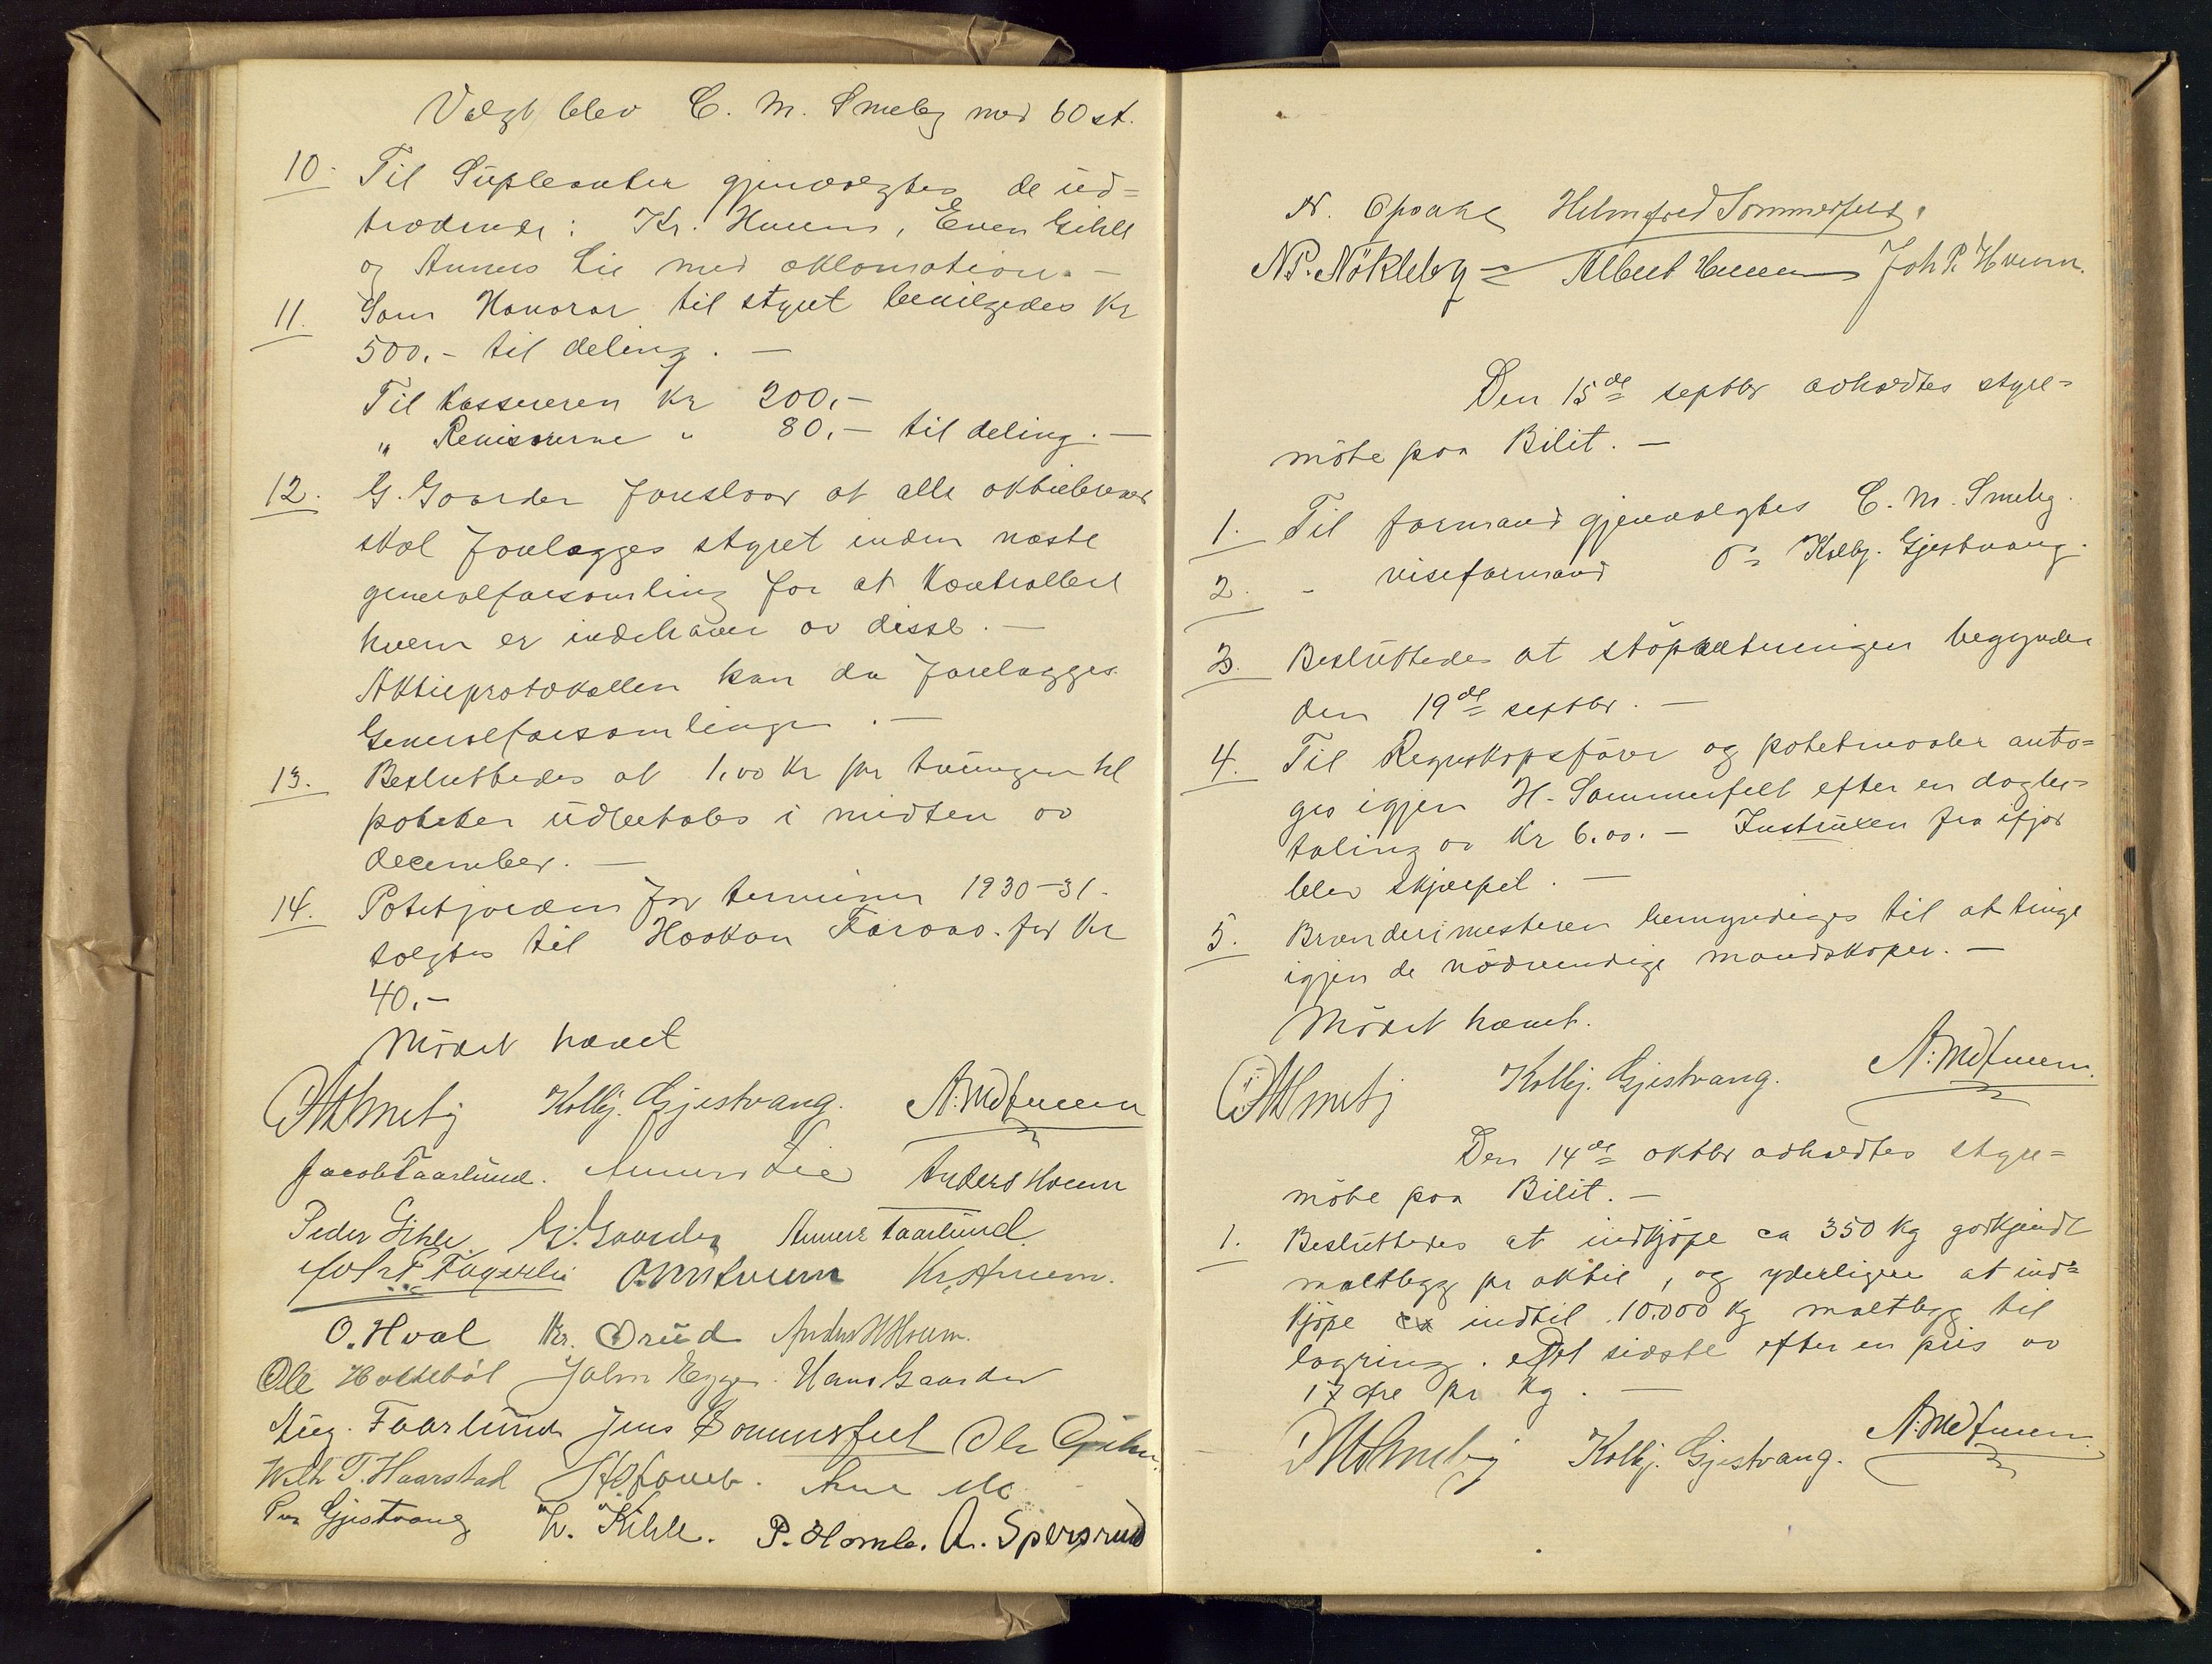 Valgt blev C. M. Smeby med 60 st.
10. Til Suplearter gjenvalgtes de ud=
trædende: Kr. Huem, Even Gihle
og Anners Lie med aklamation. —
11. Som Honorar til styret bevilgedes Kr
500.- til deling. —
Til Kassereren Kr 200,-
" Revisorerne " 80.- til deling. —
12. G. Gaarder foreslaar at alle aktiebrever
skal forelægges styret inden næste
generalforsamling for at kontrollere
hvem er indehaver av disse. —
Aktieprotokollen kan da forelægges
Generalforsamlingen. —
13. Besluttedes at 1,00 Kr pr tøungen til
poteter udbetales i midten av
december. —
14. Potetjorden for terminen 1930-31.
solgtes til Haakon for Kr
40.-
Mödet hævet
CMSmeby Kolbj. Gjestvang. A. M. Huem
Jacob Faarlund. Anners Lie Anders Hvem
Peder Gihle G. Gaarder Anners Faarlund
Joh. P. Fuglerlie O. M. Huem Kr. Huem.
O. Hval Kr. Drud Anders H Hvem.
Ole Hotlebøl John Egge. Hans Gaarder
Aug. Faarlund Jens Sommerfelt Ole
Wilh. T. Haarstad Arne Mo
Per Gjestvang L. Kihle. P. Homle. A. Spersrud
N. Opsahl Helmfred Sommerfelt,
N.P. Nökleby = Albert Huem Joh P. Hvem.
Den 15de septbr avholdtes styre=
möte paa Bilit. —
1. Til formand gjenvalgtes C. M. Smeby.
2. - viseformand Kolbj. Gjestvang.
3. Besluttedes at stöpsætningen begynder
den 19de septbr. —
4. Til Regnskapsfører og potetmaaler anta=
ges igjen H. Sommerfelt efter en dagbe=
taling av Kr 6.00. — Instruxen fra ifjor
blev skjærpet. —
5. Brænderimesteren bemyndiges til at tinge
igjen de nödvendige mandskaper. —
Mödet hævet.
CMSmeby Kolbj. Gjestvang. A. M. Huem.
Den 14de oktbr avholdtes styre=
möte paa Bilit. —
1. Besluttedes at indkjöpe ca 350 kg godkjendt
maltbygg pr aktie, og yderligere at ind=
kjöpe ca indtil 10.000 kg maltbygg til
lagring. Det sidste efter en pris av
17 øre pr kg. —
CMSmeby Kolbj. Gjestvang. A. M. Huem.